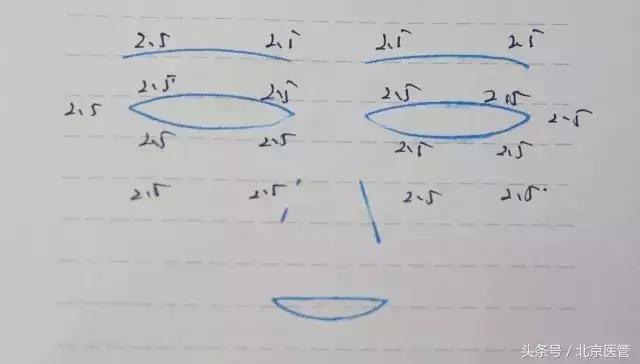 2.5 2.5 2.5 2.5
2.5 2.5 2.5 2.5
2.5 2.5
2.5 2.5 2.5 2.5
2.5 2.5 2.5 2.5
头条号 / 北京医管